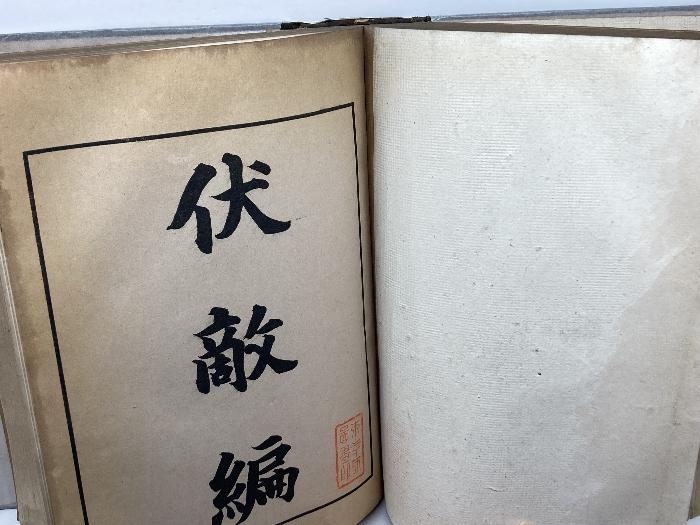 伏敵編